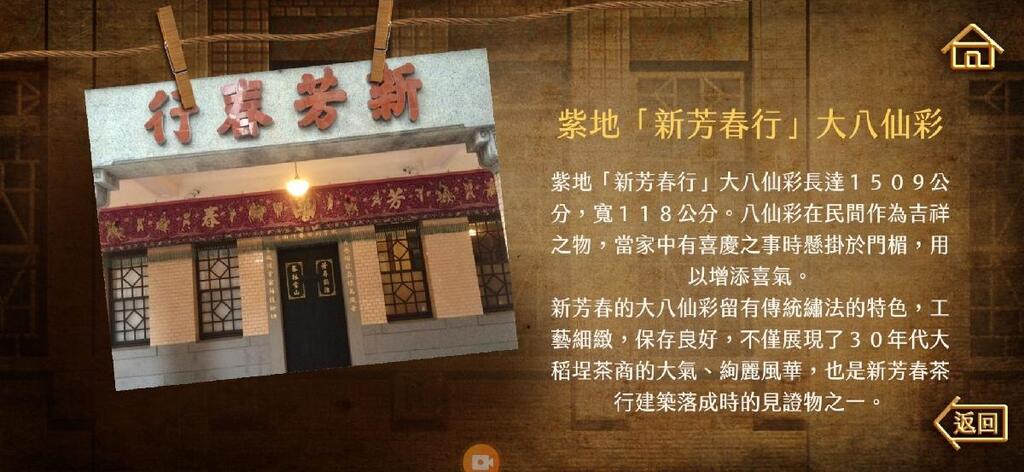 新芳春行
芳 春
紫地「新芳春行」大八仙彩
紫地「新芳春行」大八仙彩長達１５０９公
分，寬１１８公分。八仙彩在民間作為吉祥
之物，當家中有喜慶之事時懸掛於門楣，用
以增添喜氣。
新芳春的大八仙彩留有傳統繡法的特色，工
藝細緻，保存良好，不僅展現了３０年代大
稻埕茶商的大氣、絢麗風華，也是新芳春茶
行建築落成時的見證物之一。
返回